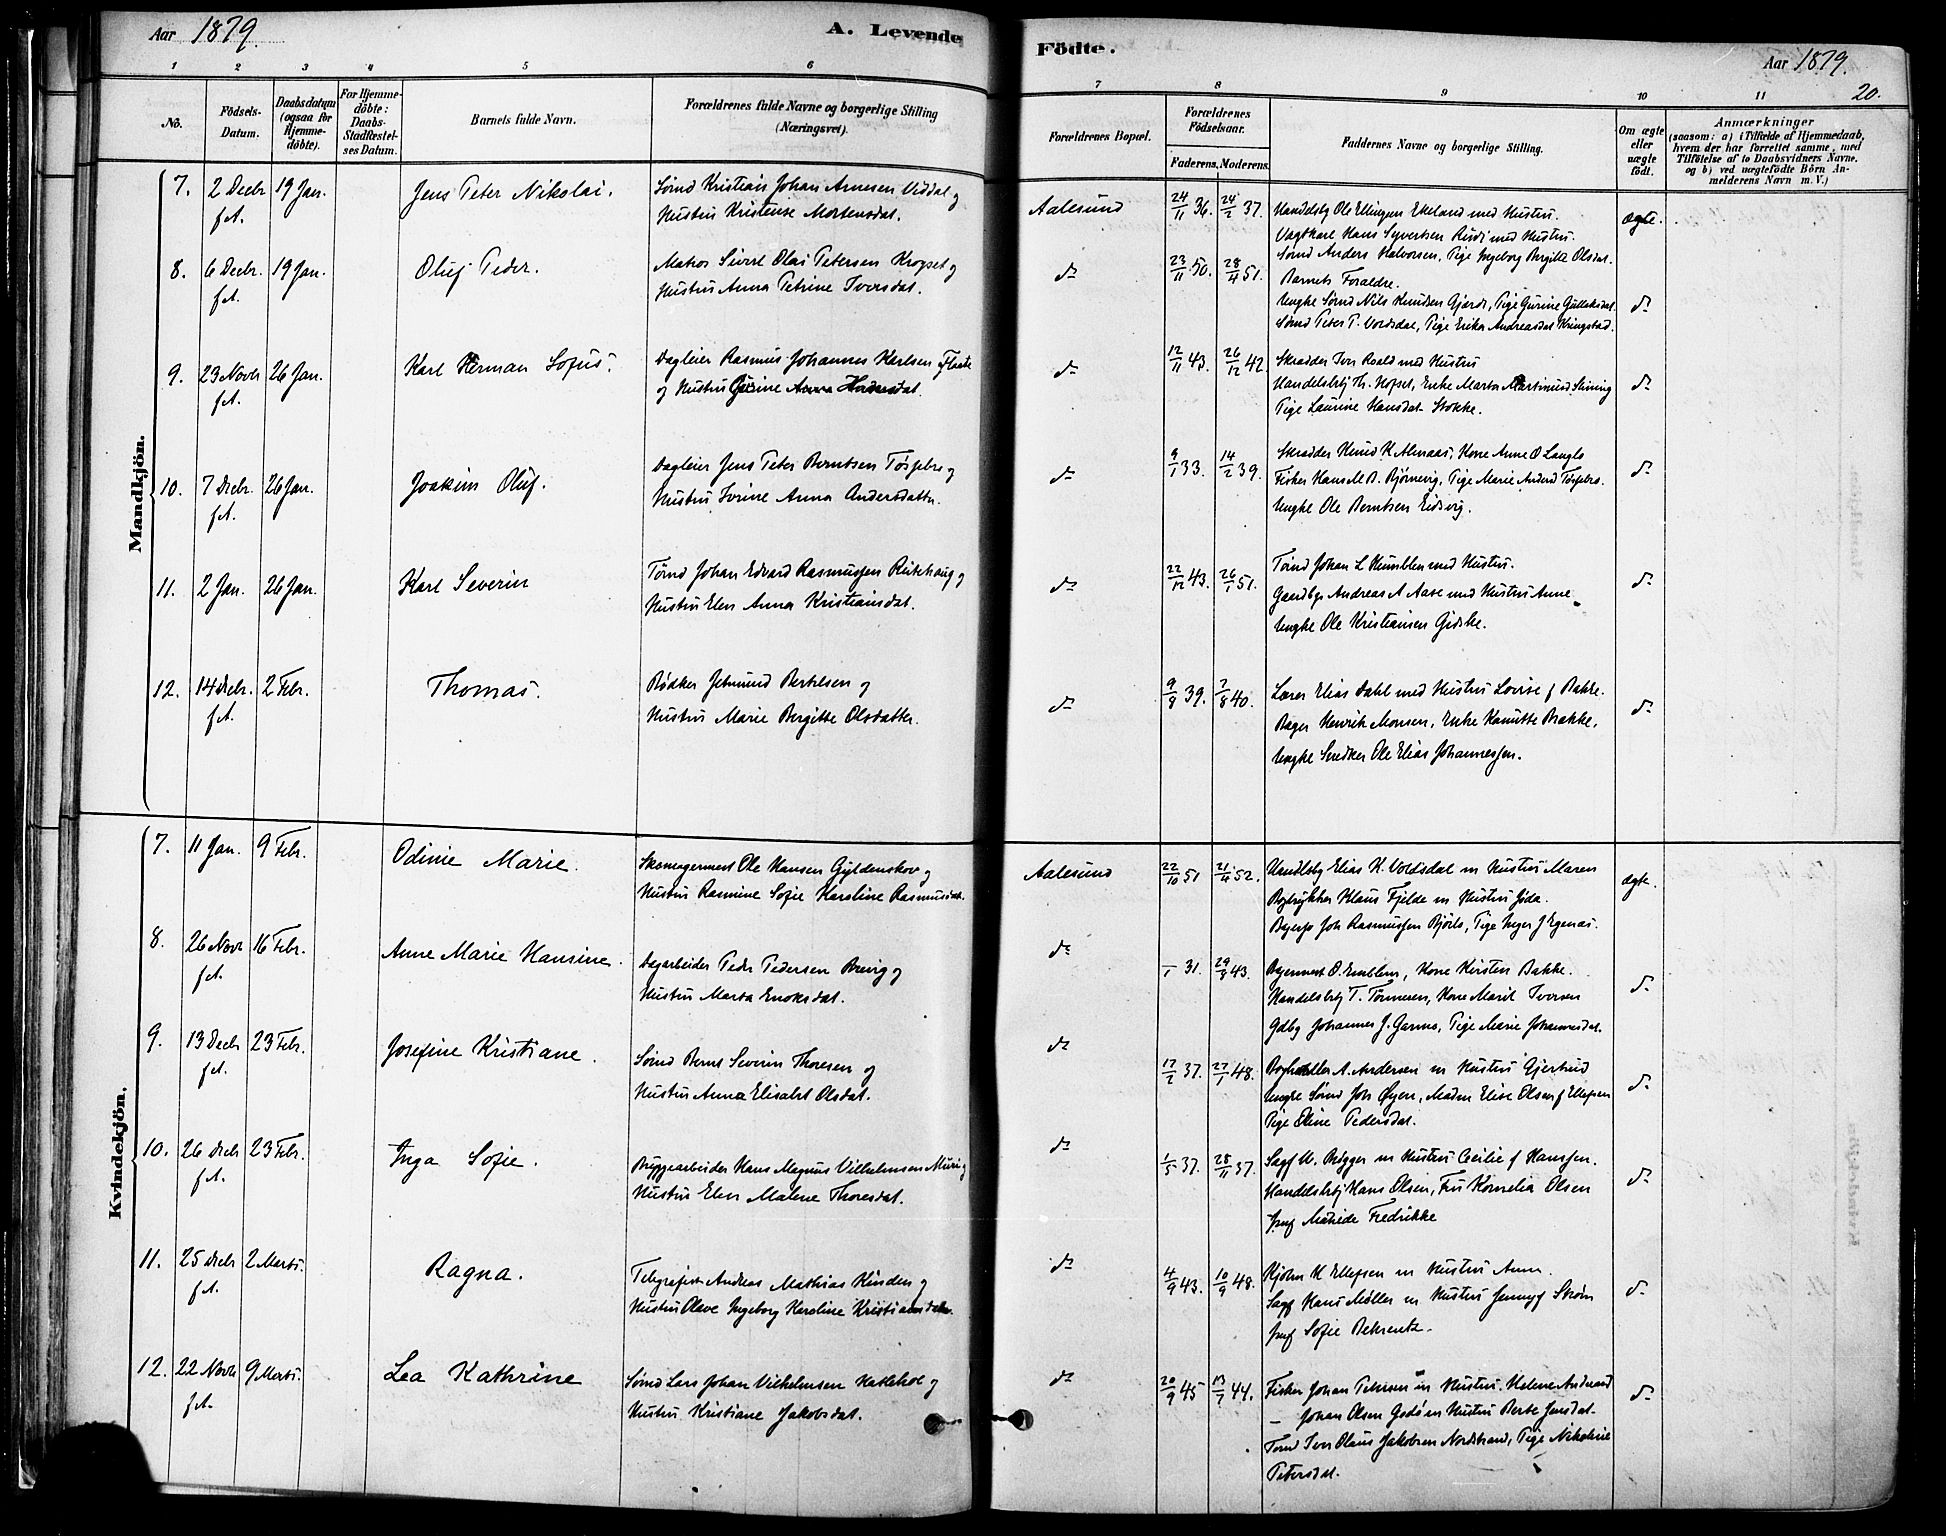 Aar 1879.
A. Levende
1 2 3 4 5 6
No.
Födsels-Datum.
Daabsdatum (ogsaa for Hjemme-döbte).
For Hjemme-döbte: Daabs-Stadfæstel-ses Datum.
Barnets fulde Navn.
Forældrenes fulde Navne og borgerlige Stilling
(Næringsvei).
Mandkjön.
7. 2 Decbr f.A. 19 Jan. Jens Peter Nikolai. Sømd Kristian Johan Arnesen Viddal og
Hustru Kristense Mortensdat.
8. 6 Decbr. f.A. 19 Jan. Oluf Peder. Matros Sivert Olai Petersen Kropset og
Hustru Anna Petrine Iversdat.
9. 23 Novbr f.A. 26 Jan. Karl Herman Sofus. Dagleier Rasmus Johannes Karlsen Flaate
og Hustru Gurine
10. 7 Decbr. f.A. 26 Jan. Joakim Oluf. Dagleier Jens Peter Berntsen Tøsfebro og
Hustru Ivrine Anna Andersdatter.
11. 2 Jan. 26 Jan. Karl Severin Tømd Johan Edvard Rasmussen Ritschaug og
Hustru Elen Anna Kristiansdat.
12. 14 Decbr. f.A. 2 Febr. Thomas. Bødker Jetmund Bertelsen og
Hustru Marie Bergitte Olsdatter.
Kvindekjön.
7. 11 Jan. 9 Febr. Odinie Marie. Skomagermest Ole Hansen Gyldenskov og
Hustru Rasmine Sofie Karoline Rasmusdat.
8. 26 Novbr f.A. 16 Febr. Anne Marie Hansine. Dagarbeider Peder Pedersen Brevig og
Hustru Marta Enoksdat.
9. 13 Decbr f.A. 23 Febr. Josefine Kristiane. Sømd Bernt Severin Thoresen og
Hustru Anna Elisabet Olsdat.
10. 26 Decbr f.A. 23 Febr. Inga Sofie. Bryggearbeider Hans Magnus Vilhelmsen Muri og
Hustru Elen Malene Thoresdat.
11. 25 Decbr f.A. 2 Marts. Ragna. Telegrafist Andreas Mathias Hinden og
Hustru Olave Ingeborg Karoline Kristiansdatter
12. 22 Novbr f.A. 9 Marts. Lea Kathrine Sømd Lars Johan Vilhelmsen Hatlehol og
Hustru Kristiane Jakobsdat.
Födte.
Aar 1879.
20.
7 8 9 10 11
Forældrenes Bopæl.
Forældrenes Födselsaar.
Faderens. Moderens.
Faddernes Navne og borgerlige Stilling.
Om ægte eller uægte födt.
Anmærkninger
(saasom: a) i Tilfælde af Hjemmedaab,
hvem der har forrettet samme, med
Tilföielse af to Daabsvidners Navne.
og b) ved uægtefödte Börn An-
melderens Navn m. V.)
Aalesund 24/11 36. 24/2 37. Handelsbg Ole Ellingsen Ekeland med Hustru. ægte.
Vagtkarl Hans Syvertsen med Hustru.
Sømd Anders Halvorsen, Pige Ingeborg Bergitte Olsdat.
do 23/11 50. 28/4 51. Barnets Forældre. do
Ungke Sømd Nils Knudsen Gjerde, Pige Gurine Gulleksdat.
Sømd Peter P. Voldsdal, Pige Erika Andreasdat Kringstad.
do 12/11 43. 26/12 42. Skrædder Iver Roald med Hustru do
Handelsbtj Th. Hopset, Enke Marta Martinusd
Pige Laurine Hansdat Stokke.
do 9/1 33. 14/2 39. Skrædder Knud K Almaas, Kone Anne O Langlo do
Fisker Hans M B. Bjørnevig, Pige Marie Andersd Tøsfebro.
Ungke Ole Berntsen Eidsvig.
do 22/12 43. 26/1 51. Tømd Johan L Humblen med Hustru. do
Gaardbgr Andreas A Aase med Hustru Anne
Ungke Ole Kristiansen Gidske.
do 9/8 39. 7/8 40. Lærer Elias Dahl med Hustru Lovise f Bakke. do
Bager Henrik Monsen, Enke Kanutte Brakke.
Ungke Snedker Ole Elias Johannessen.
Aalesund 22/10 51 21/4 52. Handlsbg Elias K. Voldsdal m Hustru Maren ægte.
Bogtrykker Klaus Fjelde m Hustru Gida.
Joh Rasmussen Bjørlo, Pige Inger J Egenæs.
do 1 31. 29/8 43. O. Emblem, Kone Kirsten Bakke. do
Handelsbtj T. Tonneren, Kone Marit Iversen
Gdbg Johannes J. Garnes, Pige Marie Johannesdat.
do 17/2 37. 27/1 48. Boghandler A. Andersen m Hustru Gjertrud do
Ungke Sømd Joh Øyen, Madm Elise Olsen f Ellefsen
Pige Oline Pedersdat.
do 1/5 37. 28/11 37. Sagf U. Brygger m Hustru Cecilie f Hanssen. do
Handelsbtj Hans Olsen, Fru Kornelia Olsen
Jmf Matilde Fredrikke
do 4/9 43. 10/9 48. Kjøbm K Ellefsen m Hustru Anna. do
Sagf Hans Møller m Hustru Jenny f Strøm
Jmf Sofie Behrentz.
do 20/9 45 13/7 44. Fisker Johan Petersen m Hustru Helene Andersd do
— Johan Olsen Godø m Hustru Berte Jensdat.
Tømd Iver Olaus Jakobsen Nordstrand, Pige Nikoline
Petersdat.